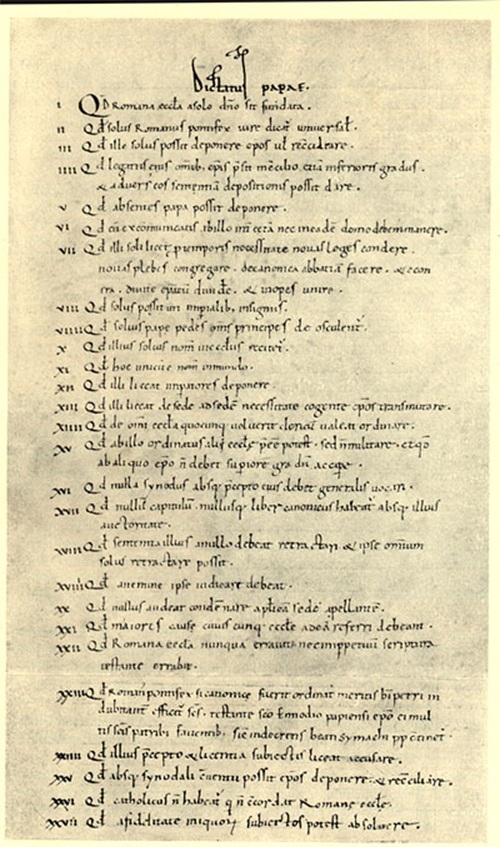 Dictatus papae.
I Qd Romana eccla a solo dno sit fundata.
II Qd solus Romanus pontifex iure dicat universal.
III Qd ille solus possit deponere epos vl reccliare.
IIII Qd legatus eius omib, epis psit in cclio, etiā inferioris gradus.
& advers eos sententiā depositionis possit dare.
V Qd absentes papa possit deponere.
VI Qd cū excommunicatis ab illo int cetā nec in eadē domo debem manere.
VII Qd illi soli licet p temporis necessitate novas leges condere.
novas plebes congregare. de canonica abbatiā facere. & econ
tra. divite epatū divide. & inopes unire.
VIII Qd solus possit uti impialib, insigniis.
VIIII Qd solius pape pedes oms principes deosculent.
X Qd illius solius nom in ecclīs recitet.
XI Qd hoc unicū ē nom in mundo.
XII Qd illi liceat impatores deponere.
XIII Qd illi liceat de sede ad sedē necessitate cogente epos transmutare.
XIIII Qd de omi eccla quocunq voluerit clericū valeat ordinare.
XV Qd ab illo ordinatus alii eccle pee potest. sed n militare. et qd
ab aliquo epo n debet supiore gradū accipe.
XVI Qd nulla synodus absq pcepto eius debet generalis vocari.
XVII Qd nullū capitulū. nullusq liber canonicus habeat absq illius
auctoritate.
XVIII Qd sententia illius a nullo debeat retractari. & ipse omnium
solus retractare possit.
XVIIII Qd a nemine ipse iudicare debeat.
XX Qd nullus audeat condēnare aplicā sedē apellantē.
XXI Qd maiores cause cuiuscunq eccle ad eā referri debeant.
XXII Qd Romana eccla nunquā erravit nec inppetuū scriptura
testante errabit.
XXIII Qd Roman pontifex si canonice fuerit ordinat meritis bī petri in
dubitant effecit scs. testante sco Ennodio papiensi epo ei mul
tis scis patribus faventib, sic in decretis beati symachi pp ctinet.
XXIIII Qd illius pcepto & licentia subiectis liceat accusare.
XXV Qd absq synodali cventu possit epos deponere. & reccliare.
XXVI Qd catholicus n habeat q n ccordat Romane eccle.
XXVII Qd a fidelitate iniquorū subiectos potest absolvere.